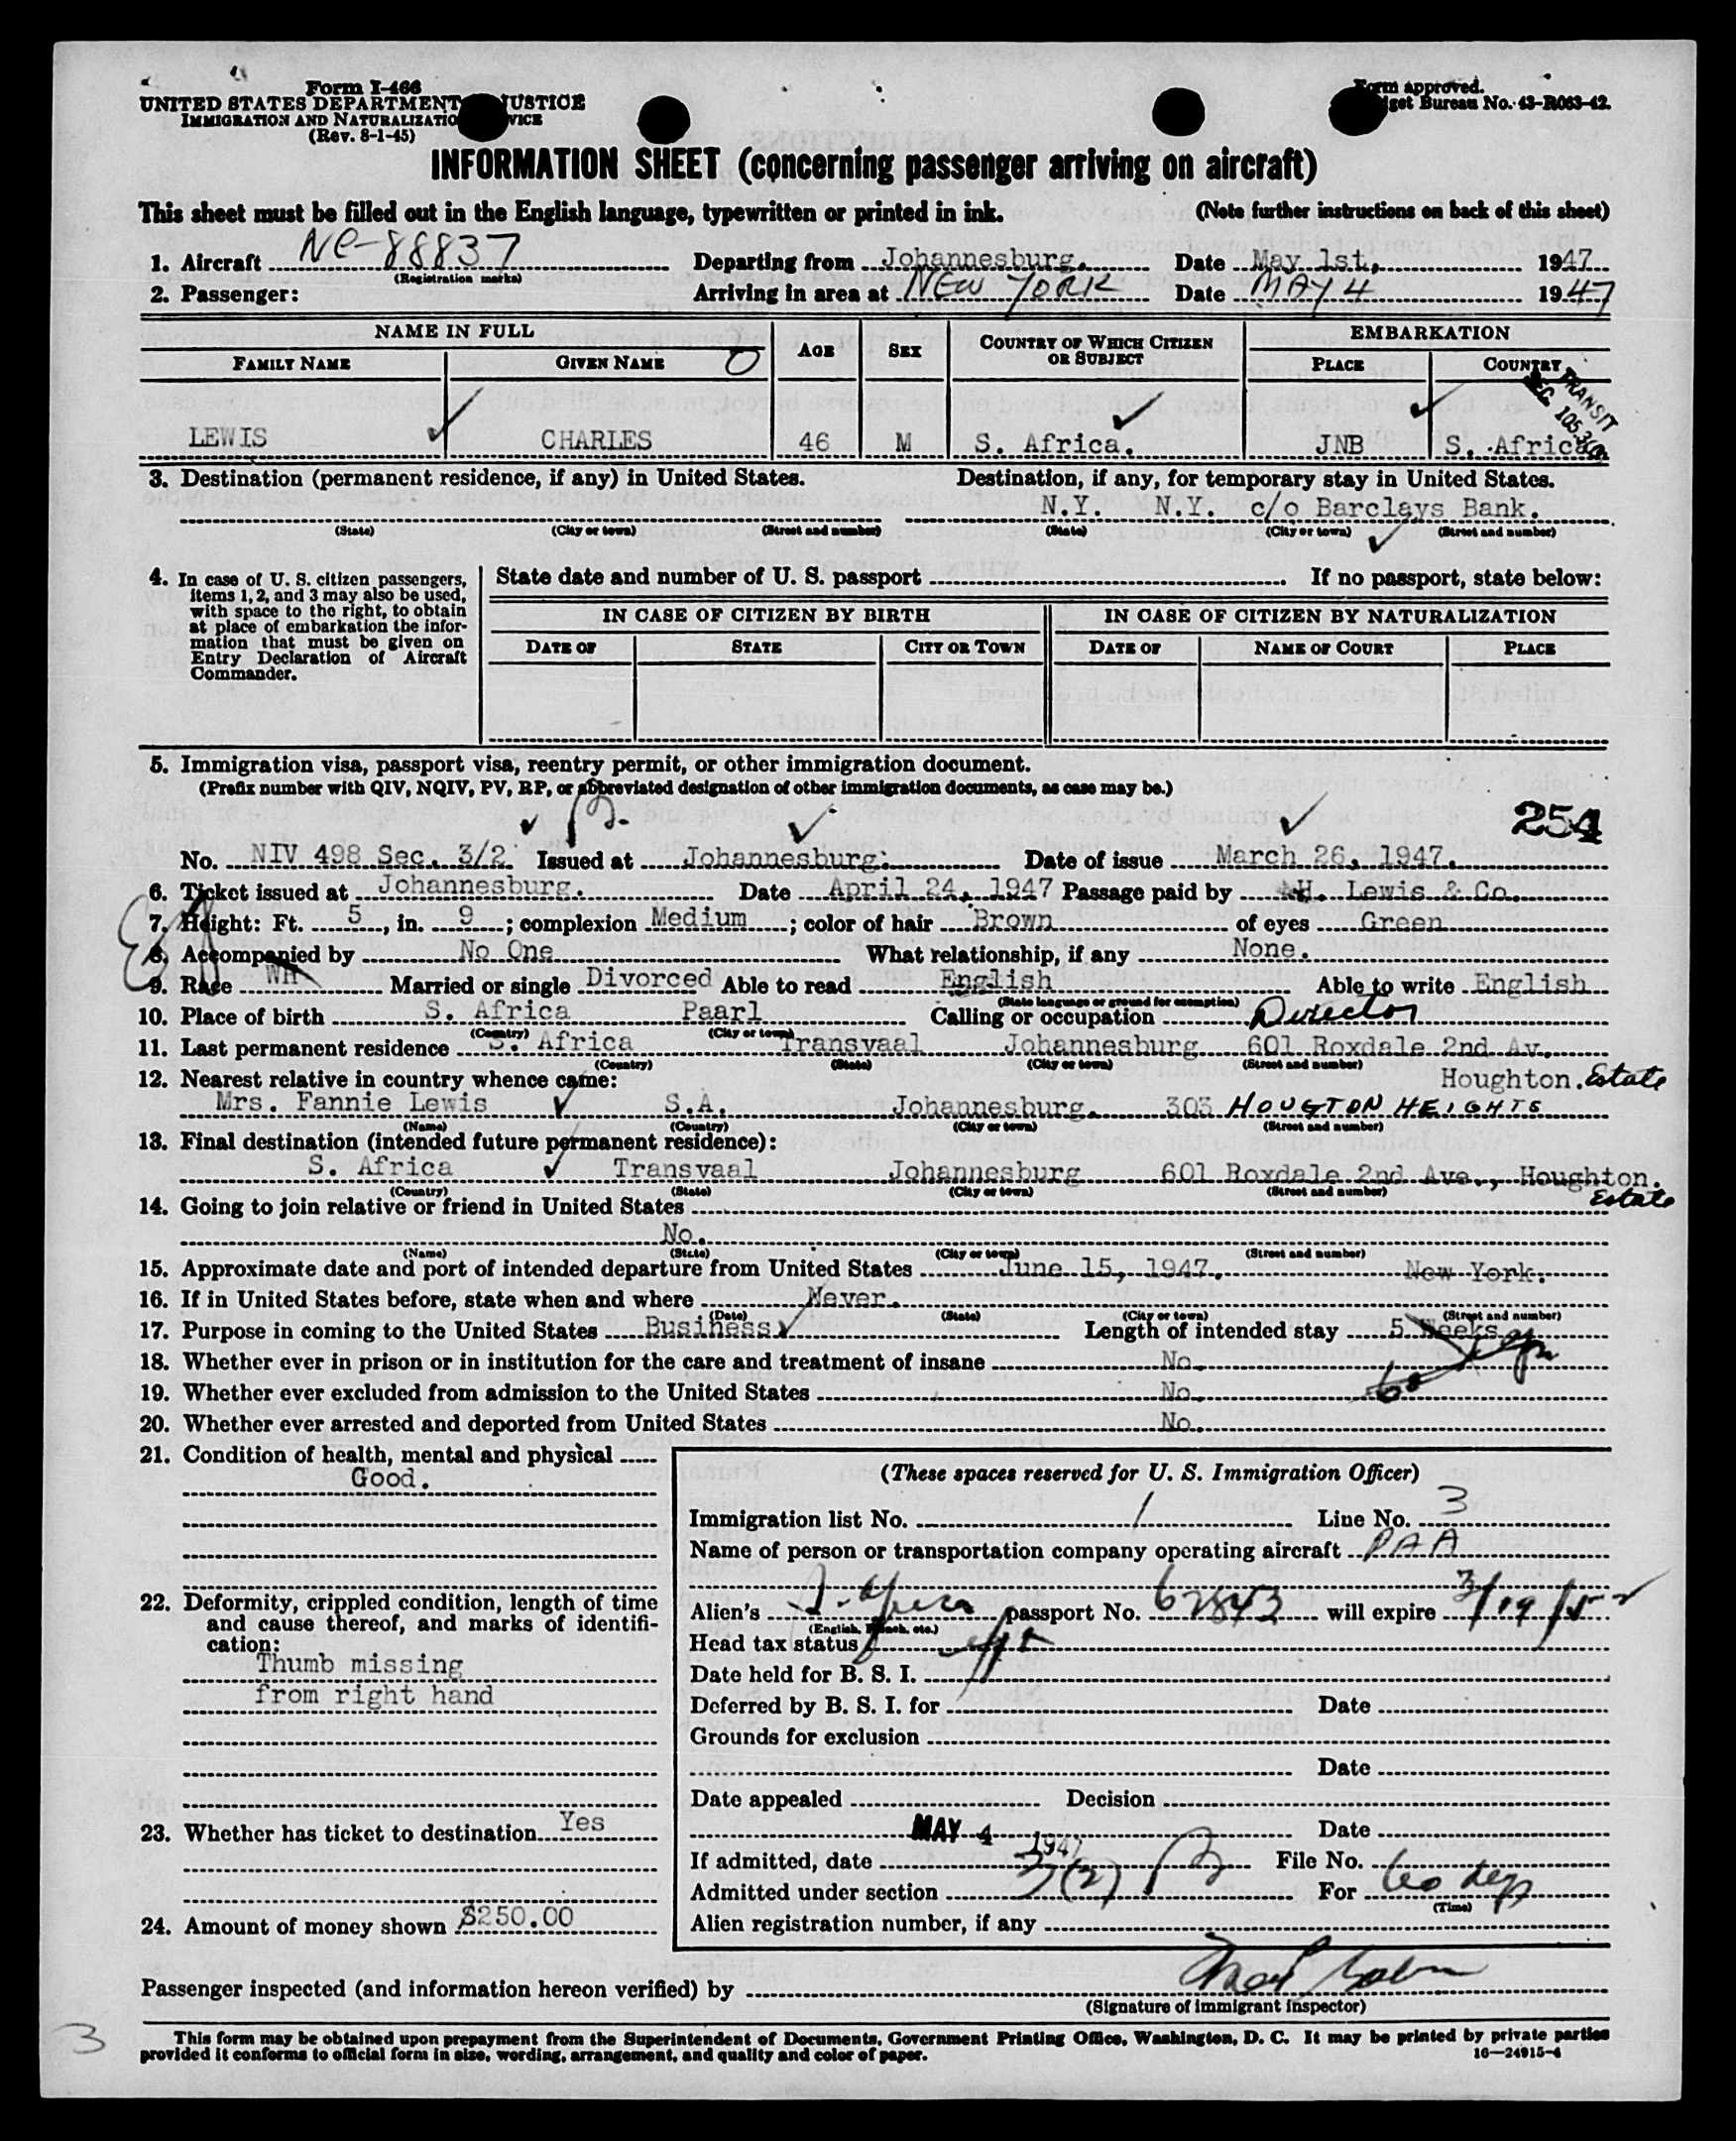 Form I-466
UNITED STATES DEPARTMENT JUSTICE
IMMIGRATION AND NATURALIZATIO VICE
(Rev. 8-1-45)
Form approved.
get Bureau No. 43-R063-42.
INFORMATION SHEET (concerning passenger arriving on aircraft)
This sheet must be filled out in the English language, typewritten or printed in ink. (Note further instructions on back of this sheet)
1. Aircraft NC-88837 Departing from Johannesburg. Date May 1st, 1947
(Registration marks)
2. Passenger: Arriving in area at NEW YORK Date MAY 4 1947
NAME IN FULL AGE SEX COUNTRY OF WHICH CITIZEN OR SUBJECT EMBARKATION
FAMILY NAME GIVEN NAME PLACE COUNTRY
TRANSIT
SEC. 105.3(
LEWIS CHARLES 46 M S. Africa. JNB S. Africa
3. Destination (permanent residence, if any) in United States. Destination, if any, for temporary stay in United States.
N.Y. N.Y. c/o Barclays Bank.
(State) (City or town) (Street and number) (State) (City or town) (Street and number)
4. In case of U. S. citizen passengers, items 1, 2, and 3 may also be used, with space to the right, to obtain at place of embarkation the information that must be given on Entry Declaration of Aircraft Commander.
State date and number of U. S. passport If no passport, state below:
IN CASE OF CITIZEN BY BIRTH IN CASE OF CITIZEN BY NATURALIZATION
DATE OF STATE CITY OR TOWN DATE OF NAME OF COURT PLACE
5. Immigration visa, passport visa, reentry permit, or other immigration document.
(Prefix number with QIV, NQIV, PV, RP, or abbreviated designation of other immigration documents, as case may be.)
254
No. NIV 498 Sec. 3/2 Issued at Johannesburg. Date of issue March 26, 1947.
6. Ticket issued at Johannesburg. Date April 24, 1947 Passage paid by H. Lewis & Co.
7. Height: Ft. 5, in. 9; complexion Medium; color of hair Brown of eyes Green
8. Accompanied by No One What relationship, if any None.
9. Race WH Married or single Divorced Able to read English Able to write English
(State language or ground for exemption)
10. Place of birth S. Africa Paarl Calling or occupation Director
(Country) (City or town)
11. Last permanent residence S. Africa Transvaal Johannesburg 601 Roxdale 2nd Av.
(Country) (State) (City or town) (Street and number)
12. Nearest relative in country whence came: Houghton. Estate
Mrs. Fannie Lewis S.A. Johannesburg. 303 HOUGTON HEIGHTS
(Name) (Country) (City or town) (Street and number)
13. Final destination (intended future permanent residence):
S. Africa Transvaal Johannesburg 601 Roxdale 2nd Ave., Houghton.
(Country) (State) (City or town) (Street and number) Estate
14. Going to join relative or friend in United States
No.
(Name) (State) (City or town) (Street and number)
15. Approximate date and port of intended departure from United States June 15, 1947. New York.
16. If in United States before, state when and where Never.
(Date) (State) (City or town) (Street and number)
17. Purpose in coming to the United States Business Length of intended stay 5 Weeks
18. Whether ever in prison or in institution for the care and treatment of insane No.
19. Whether ever excluded from admission to the United States No.
20. Whether ever arrested and deported from United States No.
21. Condition of health, mental and physical
Good.
(These spaces reserved for U. S. Immigration Officer)
Immigration list No. 1 Line No. 3
Name of person or transportation company operating aircraft PAA
22. Deformity, crippled condition, length of time and cause thereof, and marks of identification:
Thumb missing
from right hand
Alien's S. Africa passport No. 62843 will expire 3/19/52
(English, French, etc.)
Head tax status
Date held for B. S. I.
Deferred by B. S. I. for Date
Grounds for exclusion
Date
Date appealed Decision
23. Whether has ticket to destination Yes
Date
MAY 4 1947
If admitted, date File No.
Admitted under section 3(2) For 60 days
(Time)
24. Amount of money shown $250.00
Alien registration number, if any
Passenger inspected (and information hereon verified) by
(Signature of immigrant inspector)
This form may be obtained upon prepayment from the Superintendent of Documents, Government Printing Office, Washington, D. C. It may be printed by private parties
provided it conforms to official form in size, wording, arrangement, and quality and color of paper.
16—24915-4
3